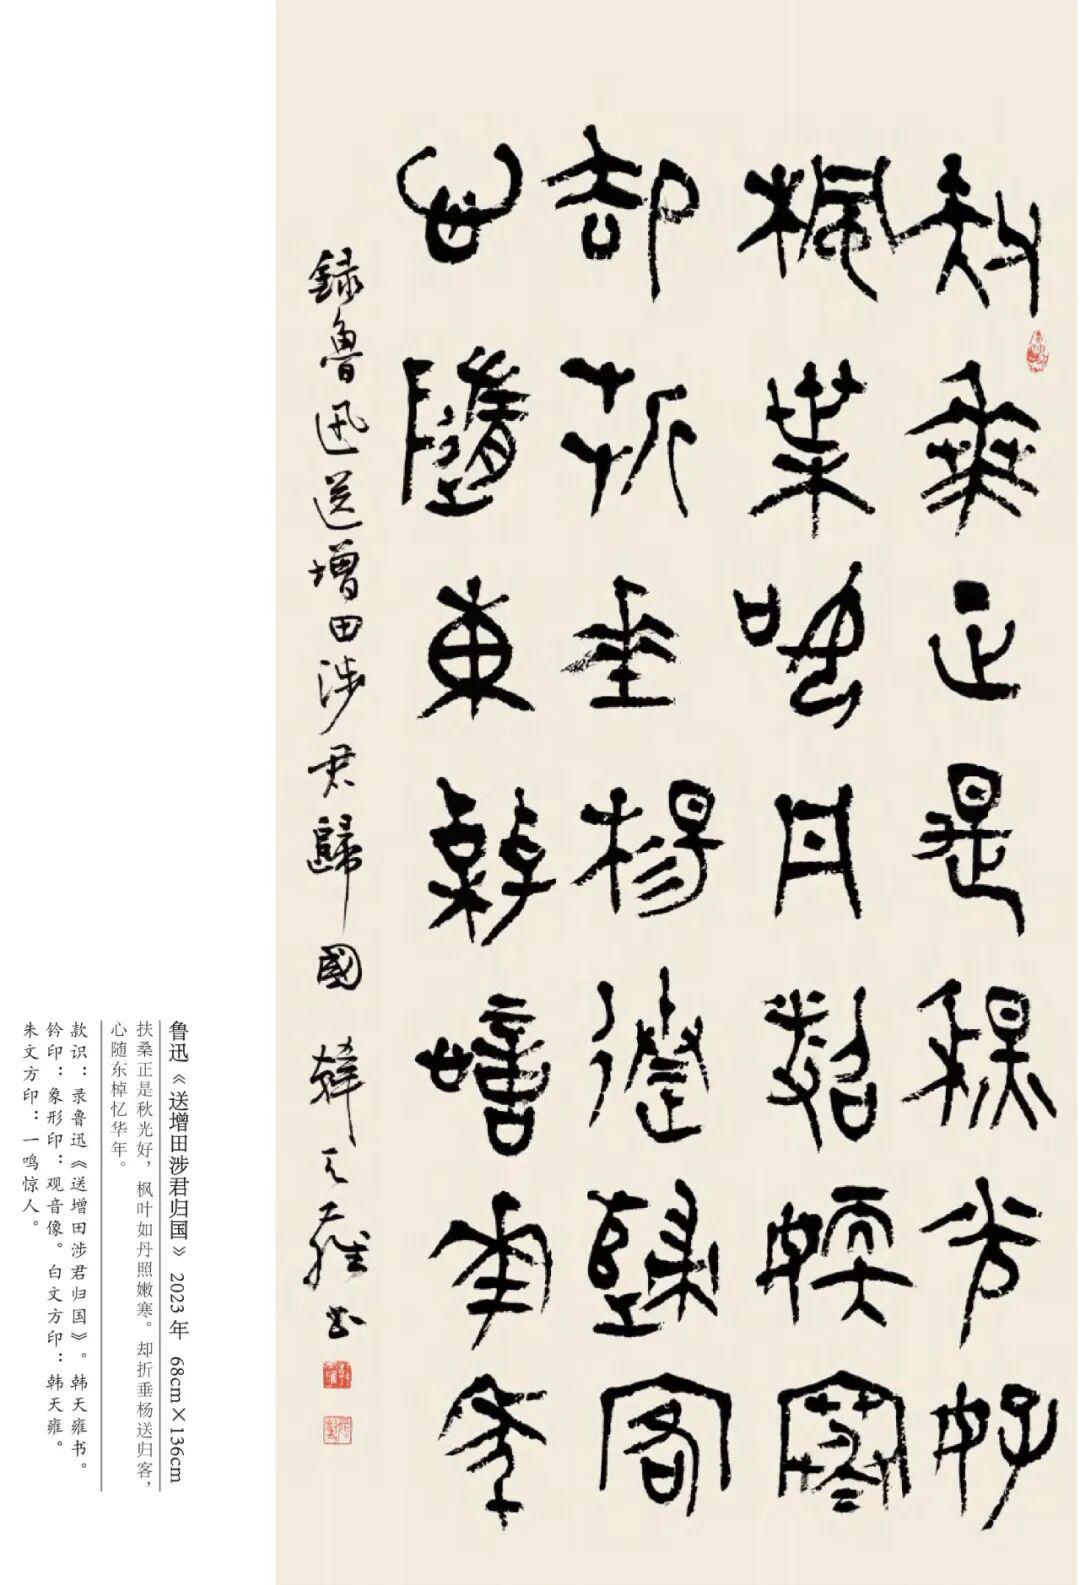 扶桑正是秋光好
楓葉如丹照嫩寒
却折垂楊送歸客
心隨東棹憶華年
録魯迅送增田涉君歸國 韓天雍書
鲁迅《送增田涉君归国》 2023年 68cm×136cm
扶桑正是秋光好，枫叶如丹照嫩寒。却折垂杨送归客，
心随东棹忆华年。
款识：录鲁迅《送增田涉君归国》。韩天雍书。
钤印：象形印：观音像。白文方印：韩天雍。
朱文方印：一鸣惊人。